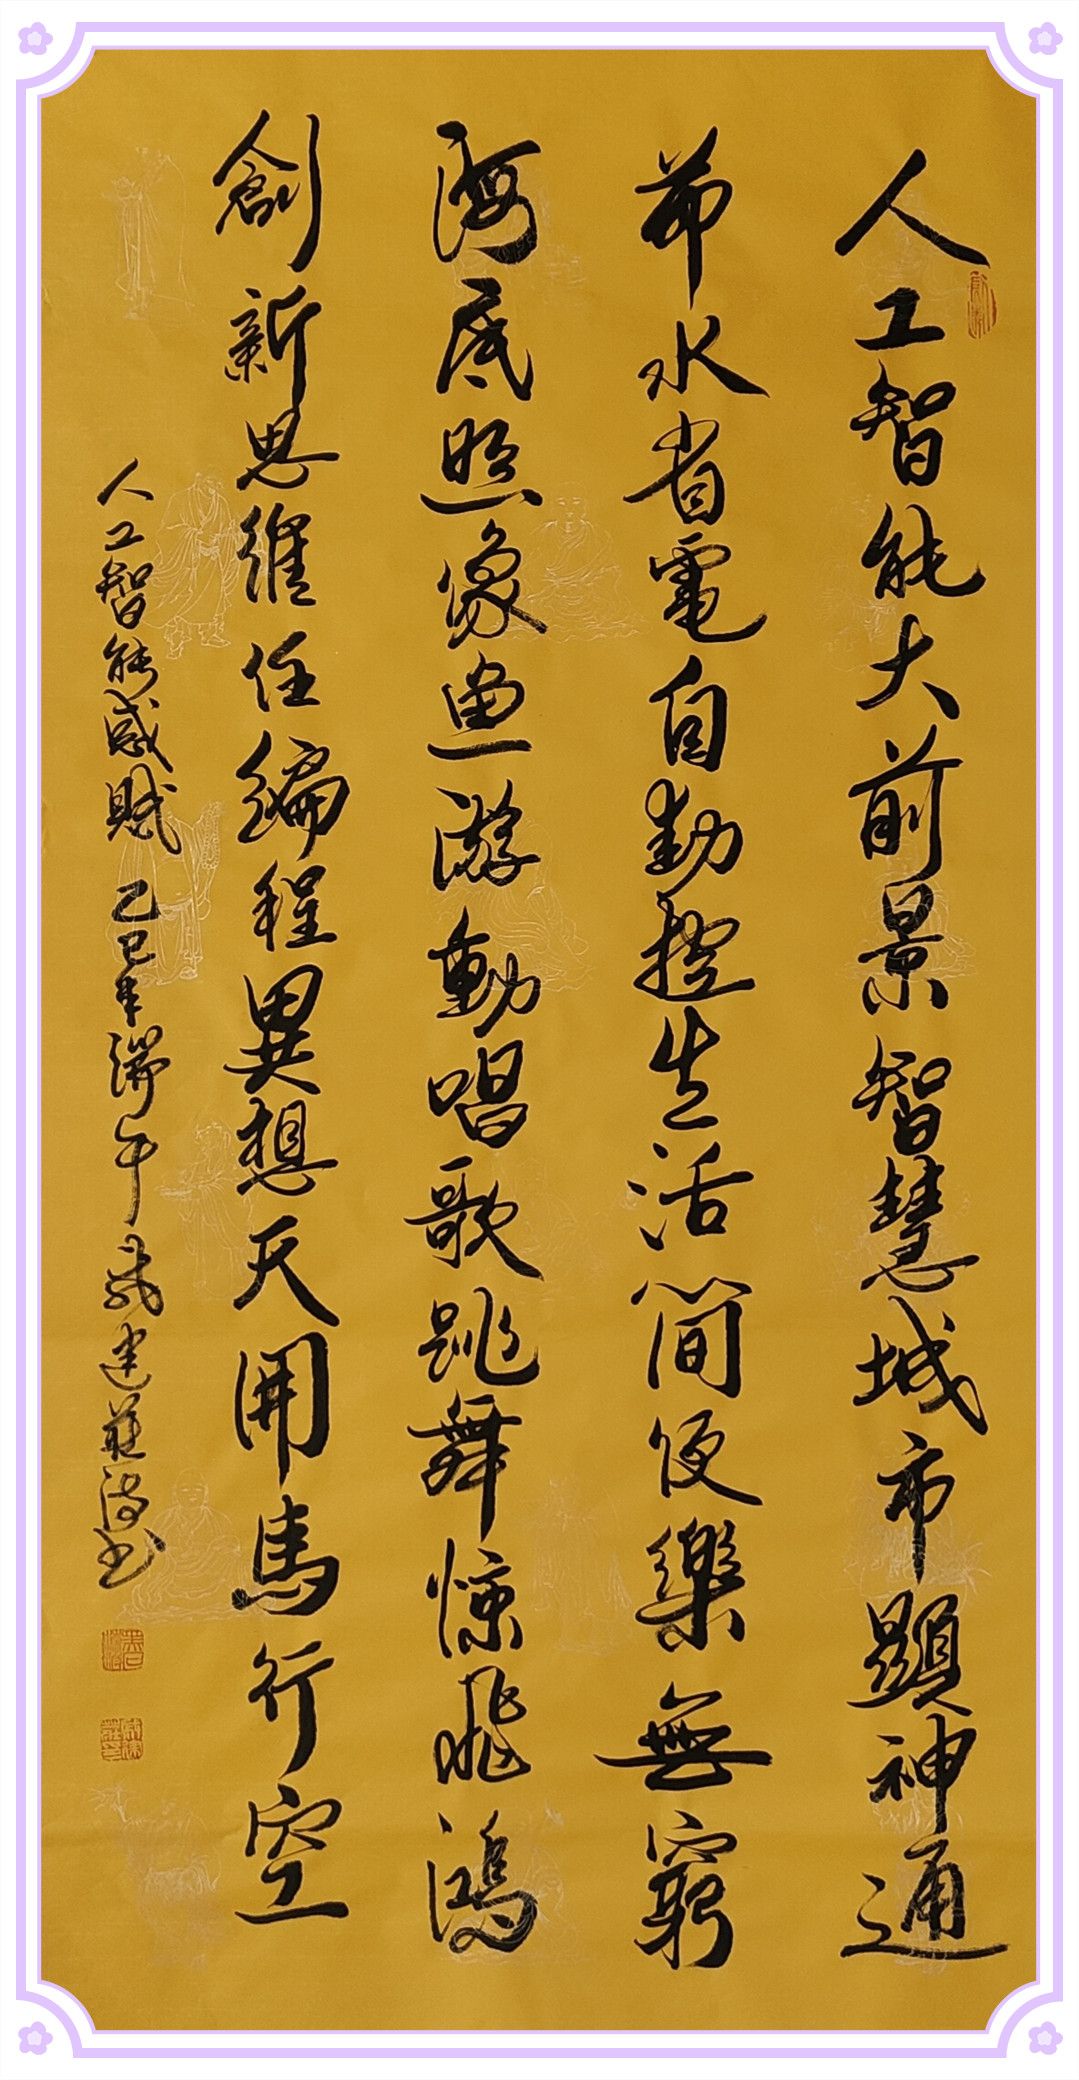 人工智能大前景智慧城市顯神通
节水省電自動控生活簡便樂無窮
海底照象魚游動唱歌跳舞惊飛鴻
創新思維任編程異想天開馬行空
人工智能感賦 乙巳年端午 戚建莊詩书